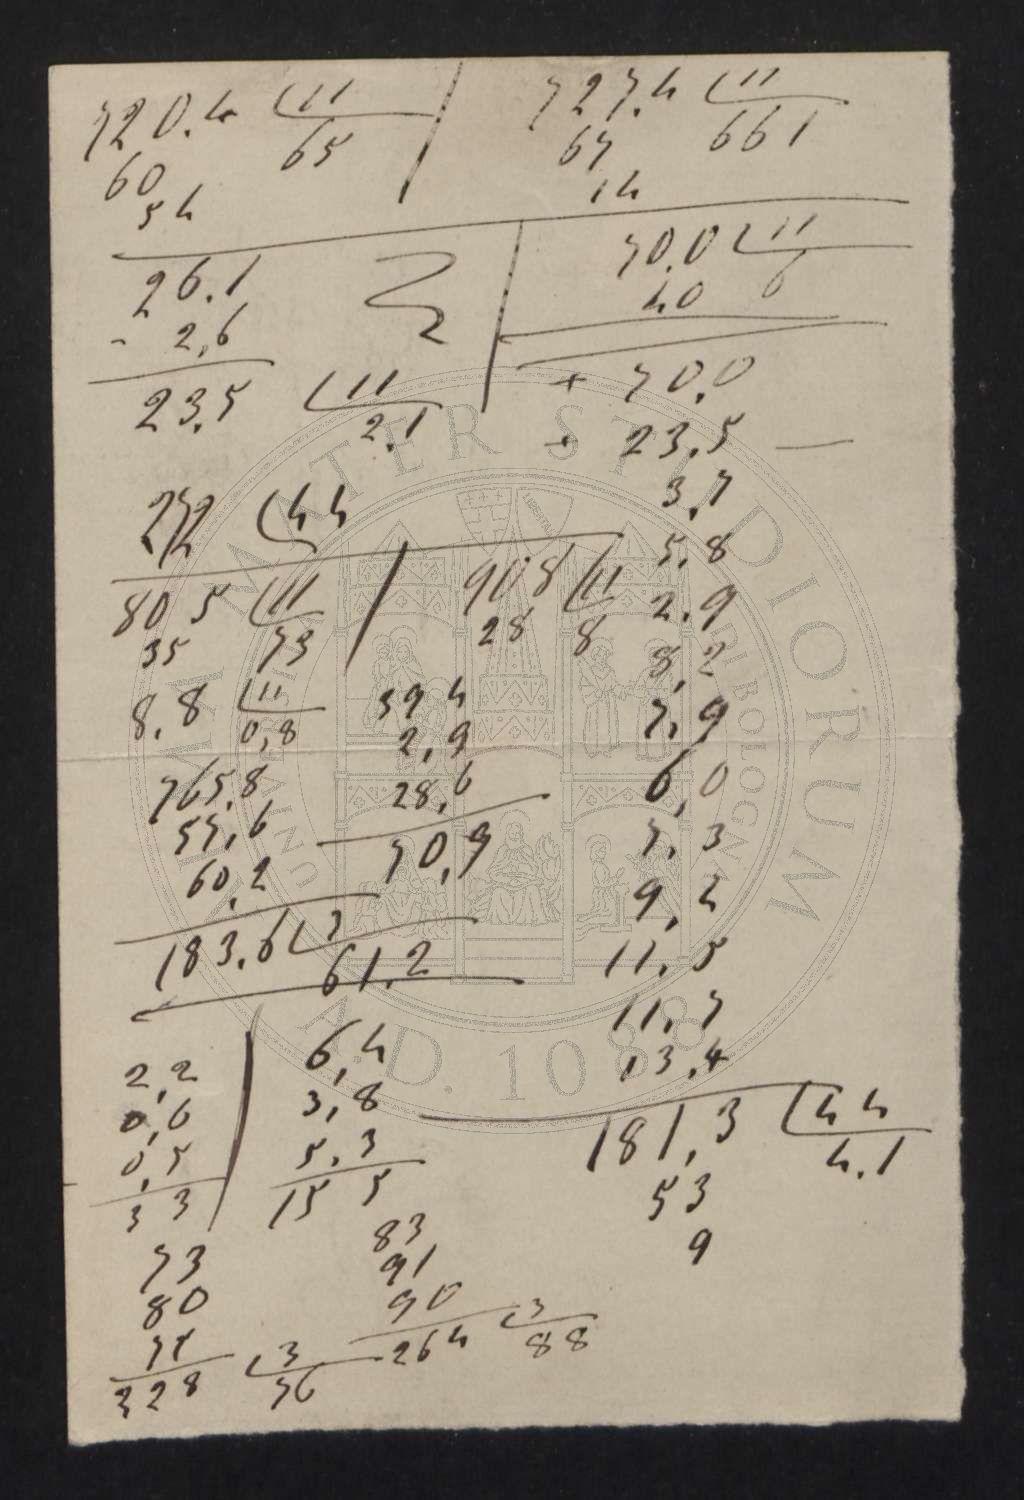 720.4 11
65
60
54
727.4 11
661
67
14
26.1
- 2,6
23.5 11
2.1
70.0 11
6
40
+ 70,0
+ 23.5 —
3,7
5.8
2.9
8,2
7,9
6,0
7,3
9,4
11,5
11,7
13,4
181,3 44
4.1
53
9
272 44
805 11
35 73
908 11
28 8
8,8 11
0,8
39 4
2,9
28,6
70,9
765,8
57,6
60,2
183,6 3
61,2
2,2
0,6
0,5
3 3
6,4
3,8
5,3
15 5
73
80
228 3
76
83
91
90
264 3
88
ALMA MATER STUDIORUM
A.D. 1088